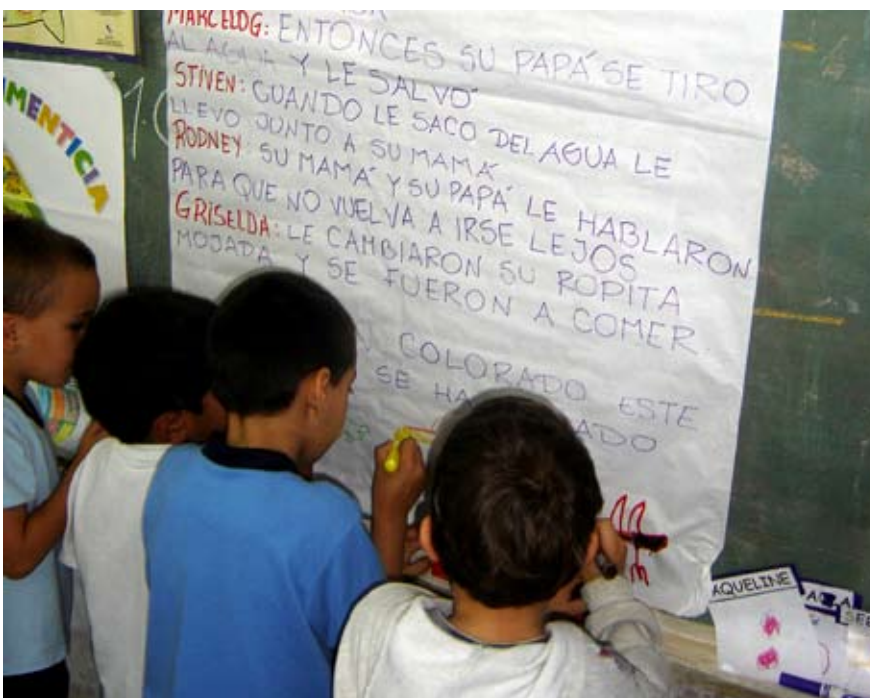 MARCELOG: ENTONCES SU PAPÁ SE TIRO
AL AGUA Y LE SALVÓ
STIVEN: CUANDO LE SACO DEL AGUA LE
LLEVO JUNTO A SU MAMÁ
RODNEY: SU MAMÁ Y SU PAPÁ LE HABLARON
PARA QUE NO VUELVA A IRSE LEJOS
GRISELDA: LE CAMBIARON SU ROPITA
MOJADA Y SE FUERON A COMER.
COLORADO ESTE
SE HA
MENTICIA
AQUELINE